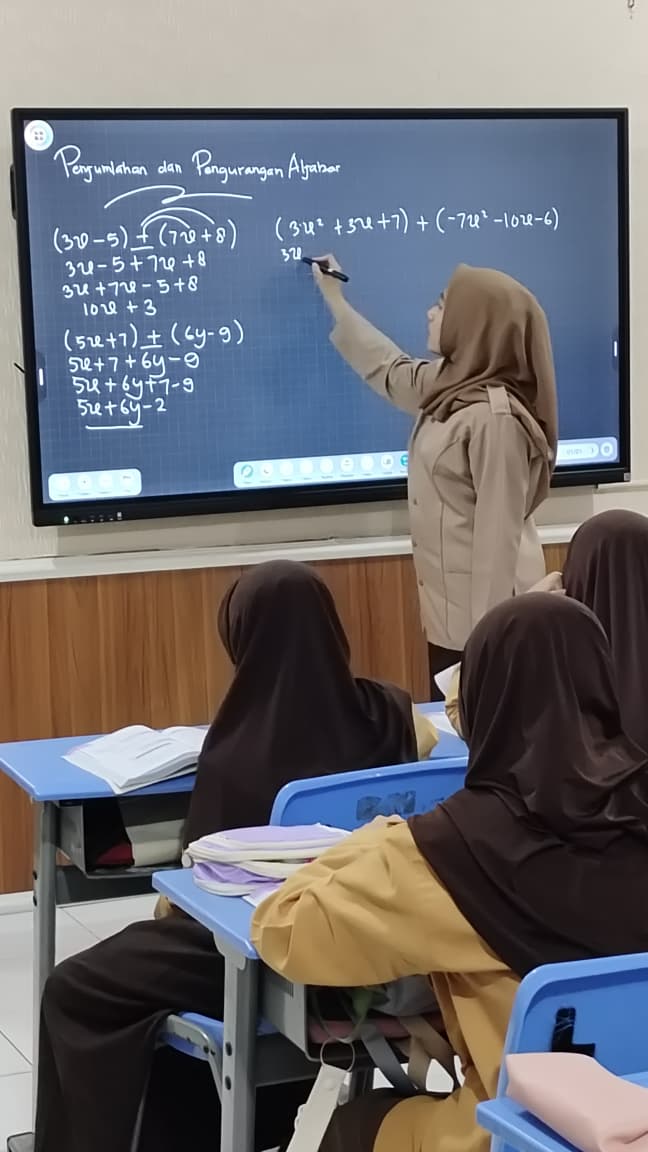 Penjumlahan dan Pengurangan Aljabar
(3x-5) + (7x+8)
3x-5+7x+8
3x+7x-5+8
10x+3
(5x+7) + (6y-9)
5x+7+6y-9
5x+6y+7-9
5x+6y-2
(3x² +3x+7) + (-7x² -10x-6)
3x